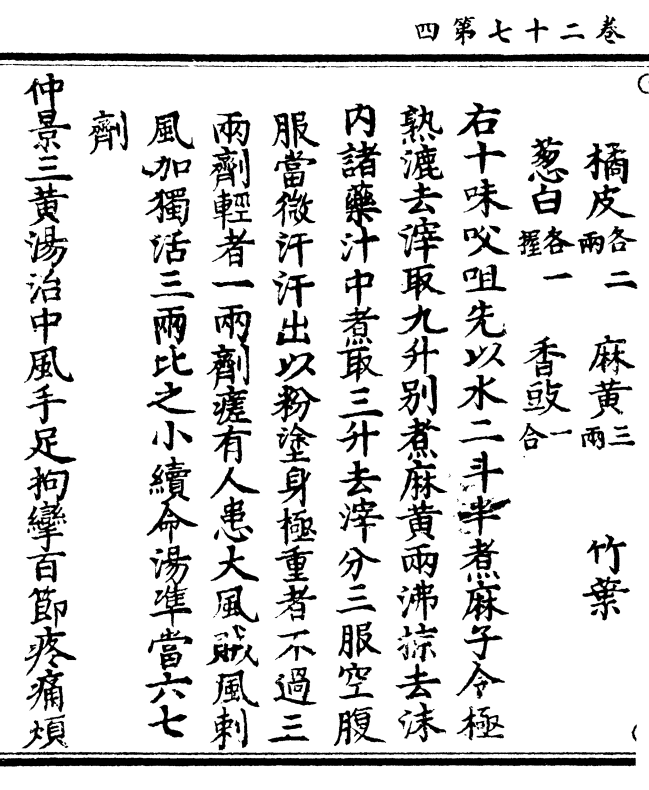 卷二十七第四
橘皮各二兩 麻黃三兩 竹葉
葱白各一握 香豉一合
右十味㕮咀先以水二斗半煮麻子令極
熟漉去滓取九升别煮麻黃兩沸掠去沫
内諸藥汁中煮取三升去滓分三服空腹
服當微汗汗出以粉塗身極重者不過三
兩劑輕者一兩劑瘥有人患大風賊風刺
風加獨活三兩比之小續命湯凖當六七
劑
仲景三黃湯治中風手足拘攣百節疼痛煩